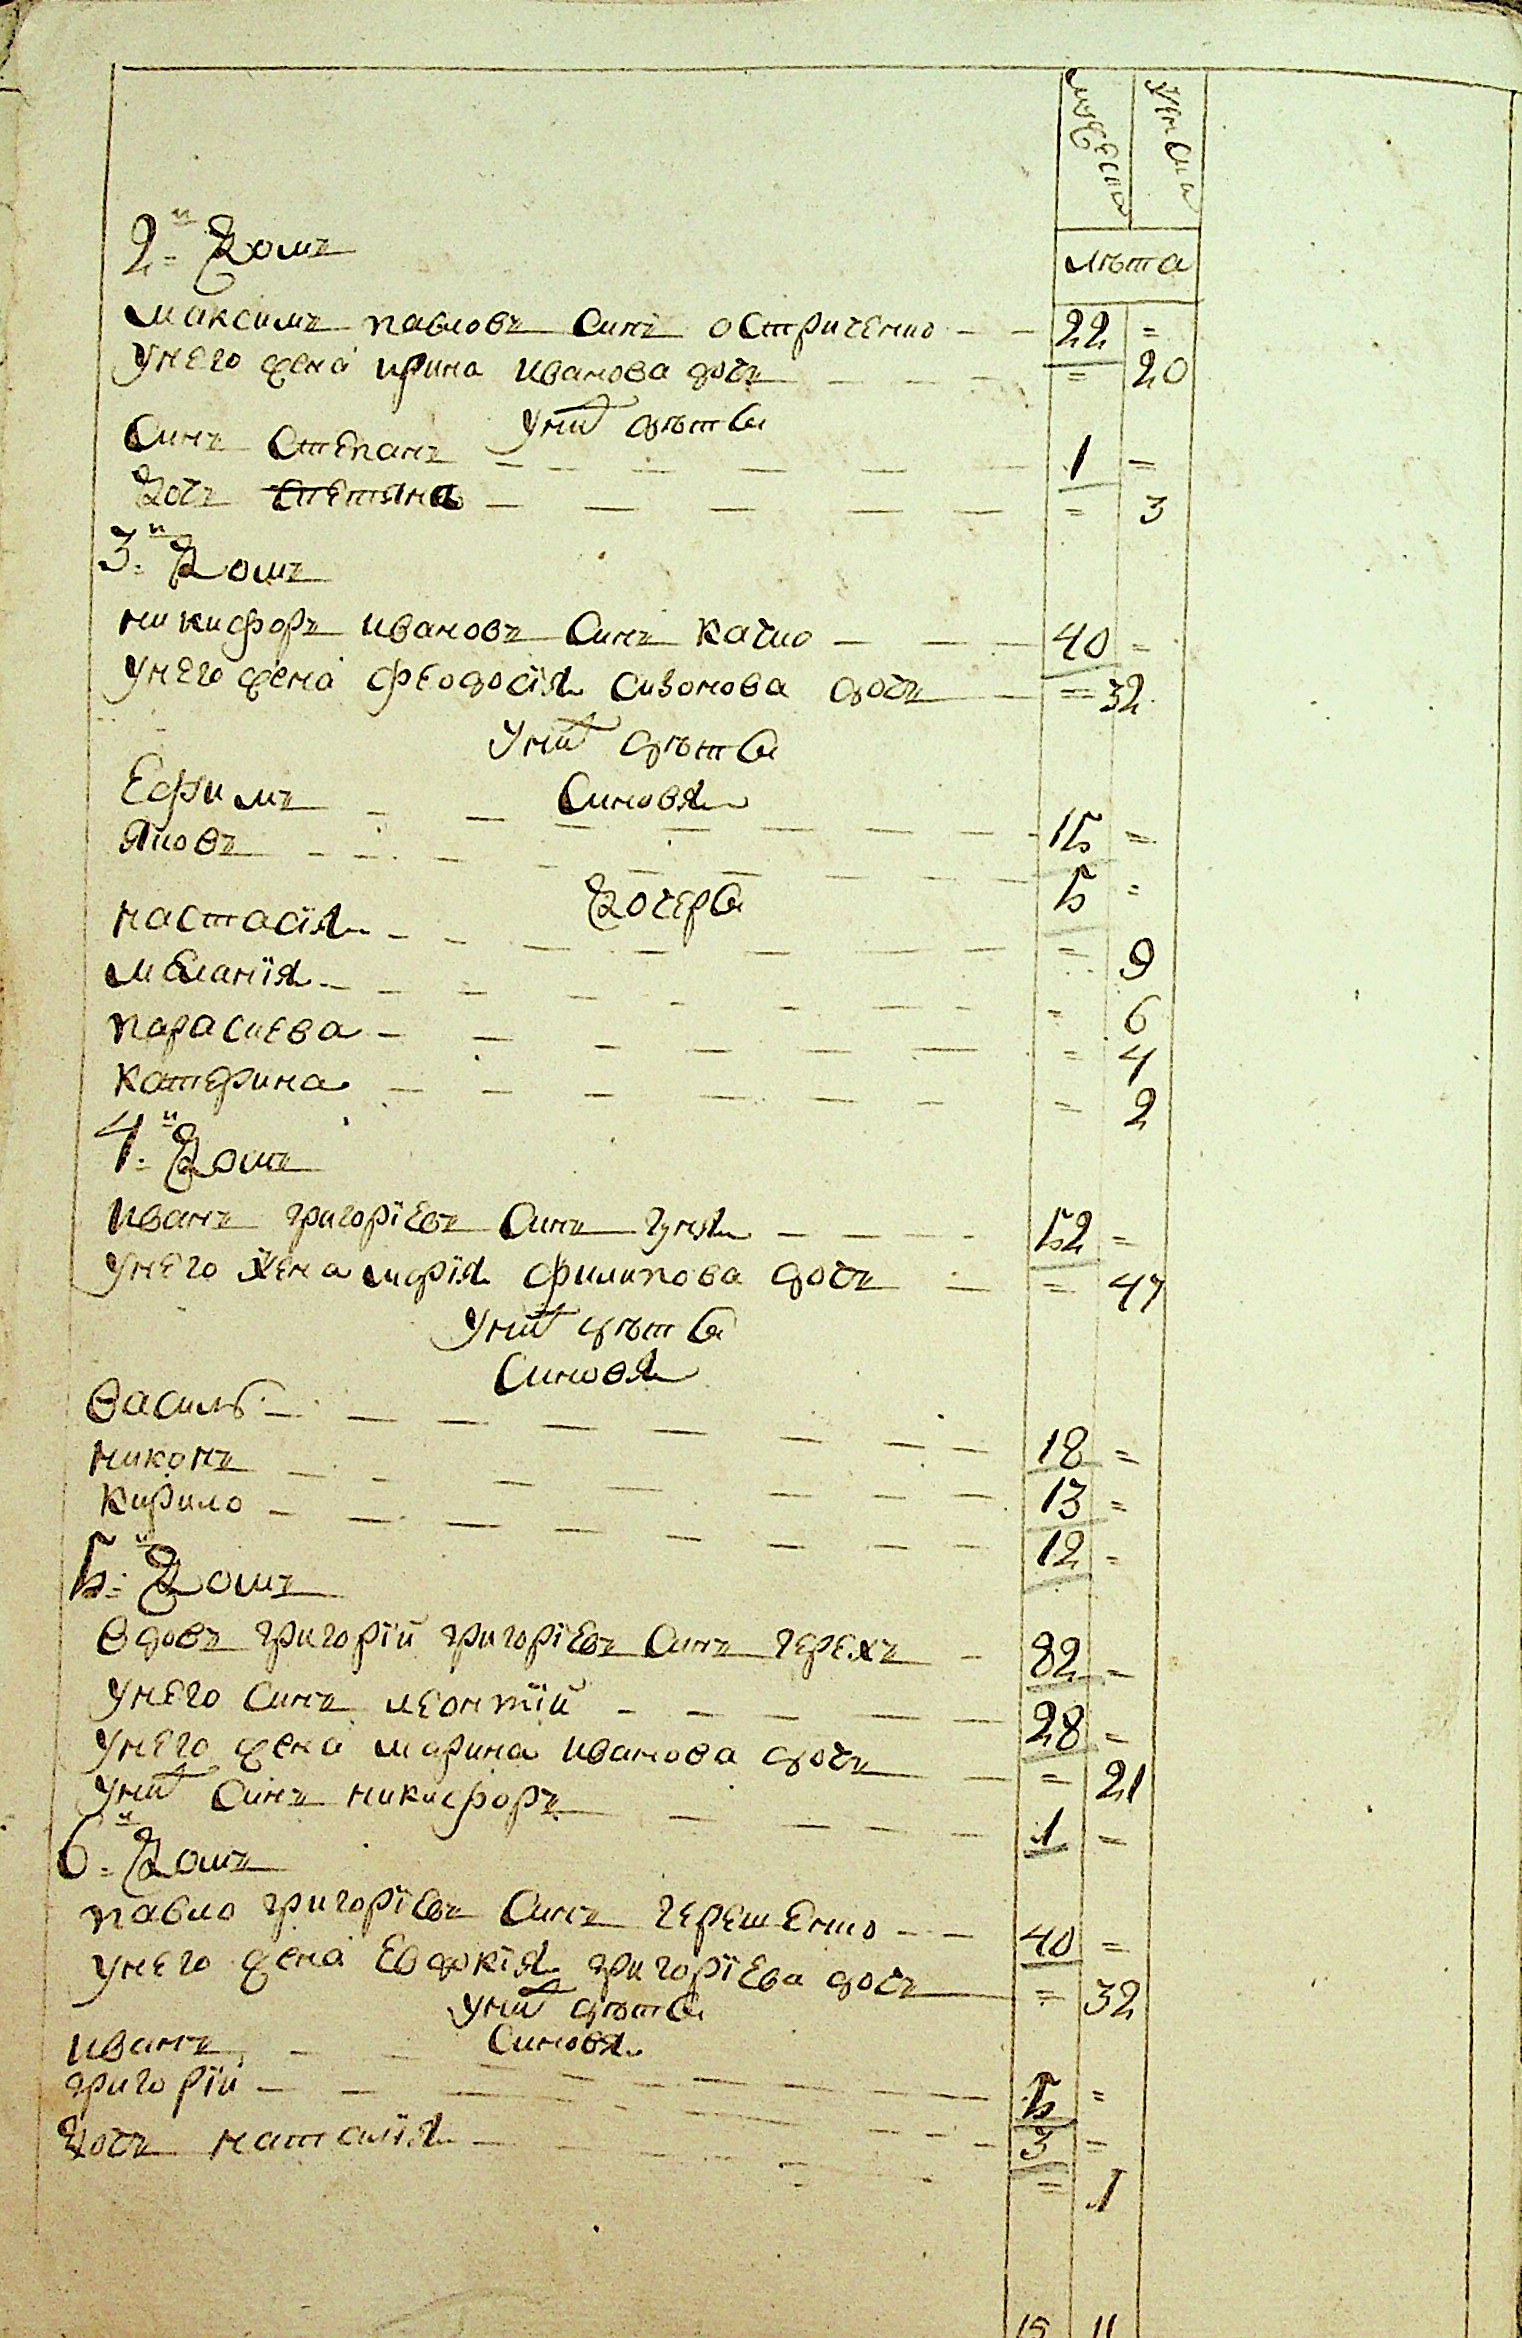 мужеска женска
лѣта
2й Домъ
максимъ павловъ Синъ остриченко 22 =
Унего жена ирина иванова дочъ = 20
Унихъ дѣтеи
Синъ Степанъ 1 =
Дочъ = 3
3й Домъ
никифоръ ивановъ Синъ качко 40 =
Унего жена феодосія Сизонова дочъ = 32
Унихъ дѣтеи
Синовя
Ефимъ 15 =
яковъ 5 =
Дочери
настасія = 9
меланія = 6
параскева = 4
катерина = 2
4й Домъ
иванъ григоріевъ Синъ гуня 52 =
Унего жена марія филипова дочъ = 47
Унихъ дѣтеи
Синовя
василь 18 =
никонъ 13 =
кирило 12 =
5й Домъ
вдовъ григорій григоріевъ Синъ герехъ 82 =
Унего Синъ леонтій 28 =
Унего жена марина иванова дочъ = 21
Унихъ Синъ никифоръ 1 =
6й Домъ
павло григоріевъ Синъ герешенко 40 =
Унего жена Евдокія григоріева дочъ = 32
Унихъ дѣтеи
Синовя
иванъ 5 =
григорій 3 =
Дочъ наталія = 1
15 11